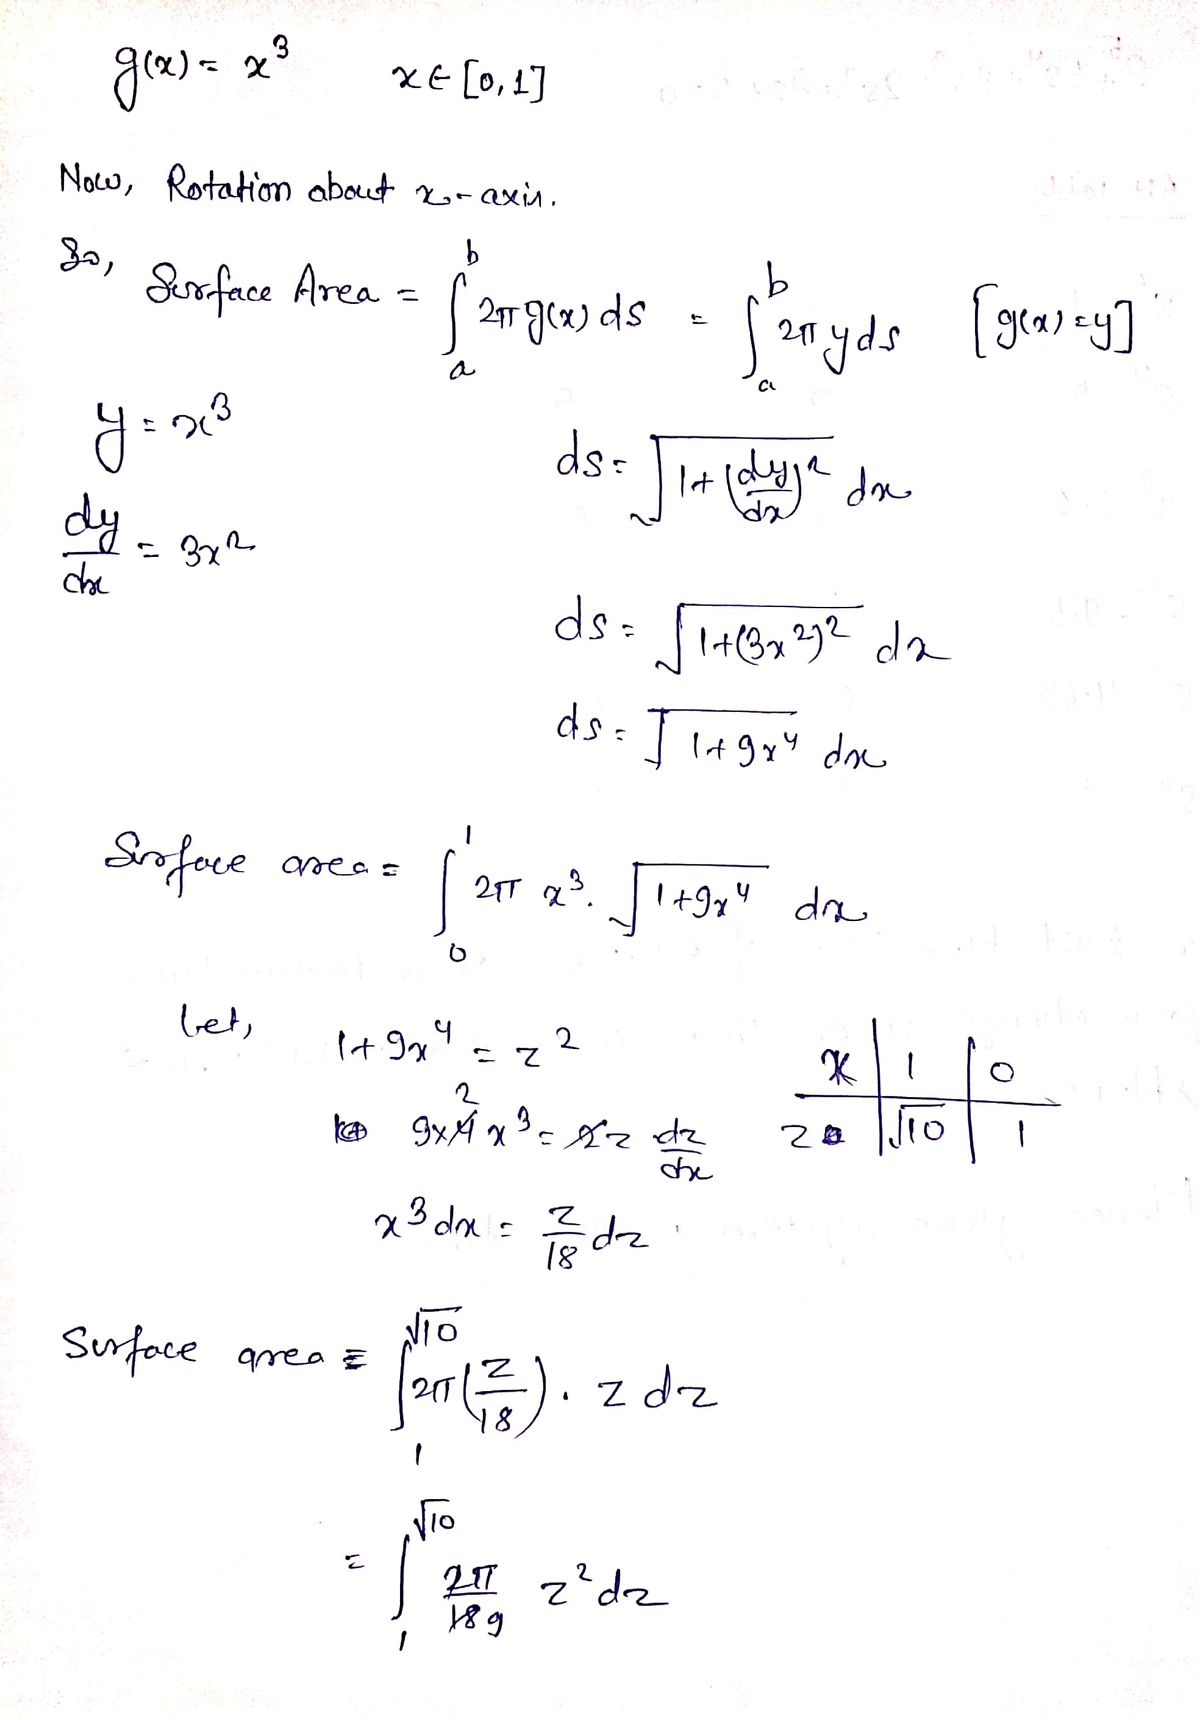 g(x) = x³ x ∈ [0,1]
Now, Rotation about x-axis.
So, Surface Area = ∫ₐᵇ 2π g(x) ds = ∫ₐᵇ 2π y ds [g(x) = y]
y = x³
ds = √(1+(dy/dx)²) dx
dy/dx = 3x²
ds = √(1+(3x²)²) dx
ds = √(1+9x⁴) dx
Surface area = ∫₀¹ 2π x³. √(1+9x⁴) dx
Let, 1+9x⁴ = z²
x | 1 | 0
9×4 2 x³ = 2z dz/dx
z | √10 | 1
x³dx = z/18 dz
Surface area = ∫₁^√10 2π (z/18) . z dz
= ∫₁^√10 2π/18 9 z² dz